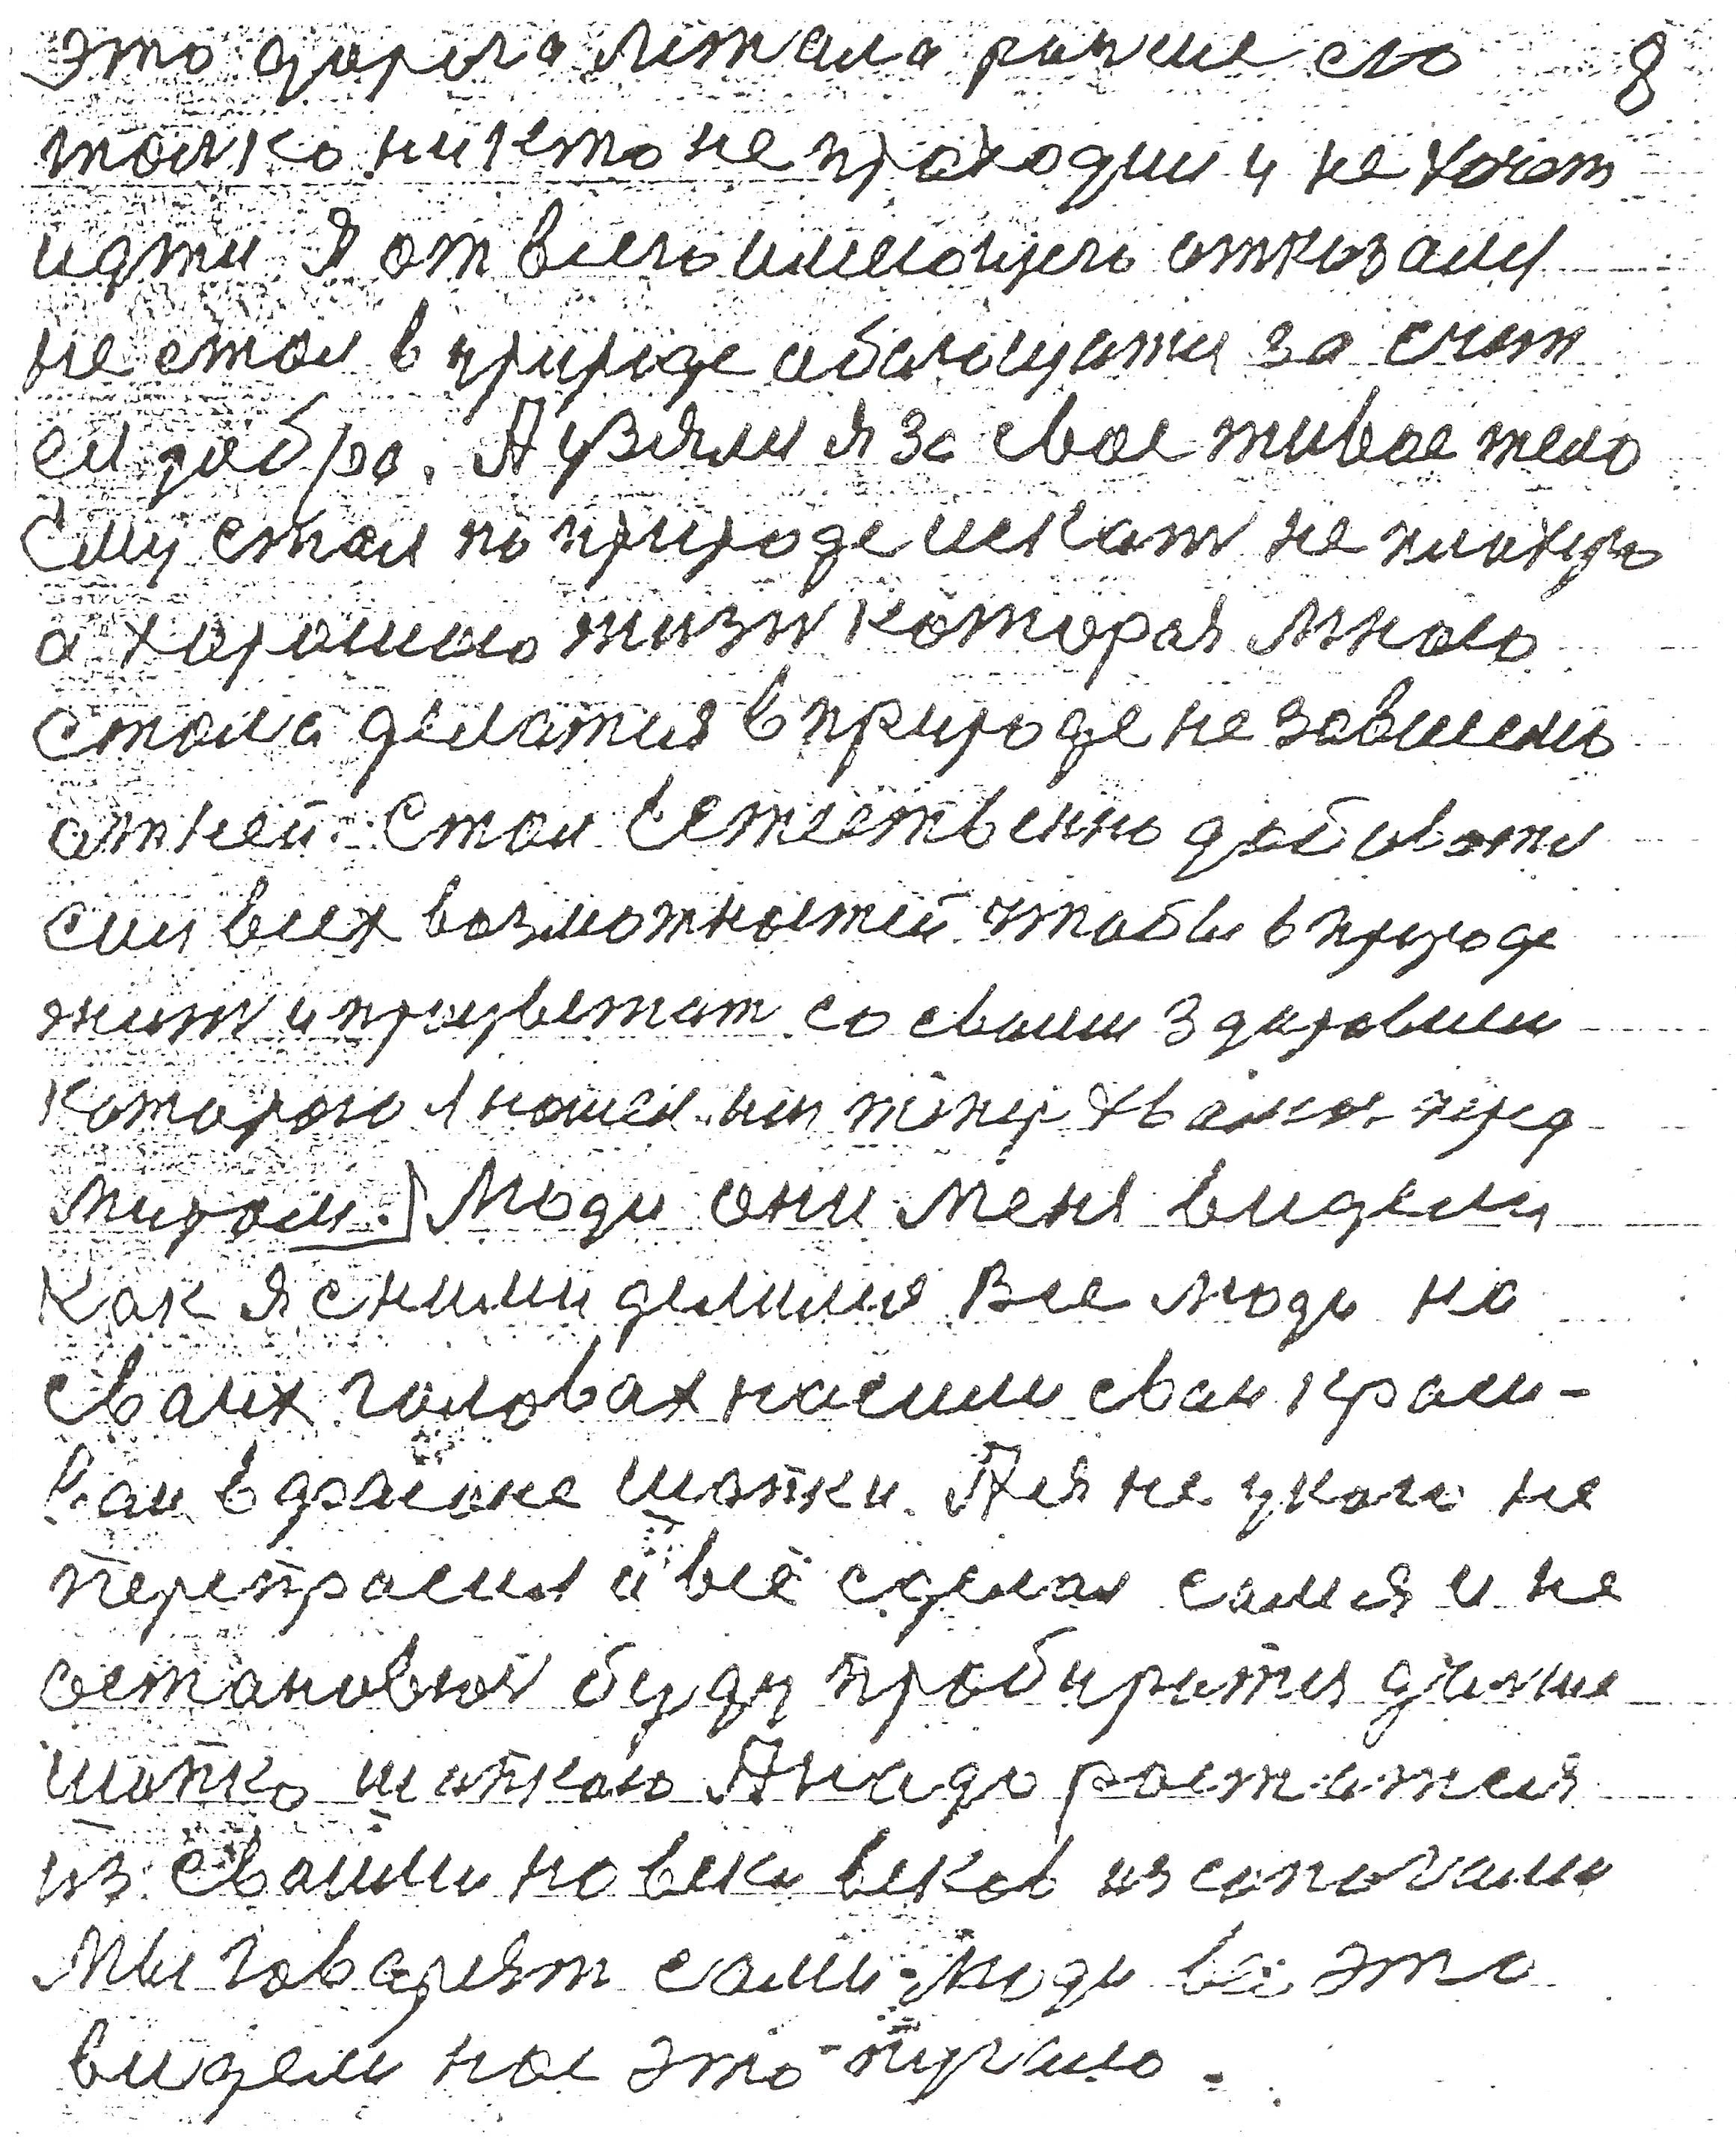 Это дорога лежала раньше его 8
толко никто не проходил и не хочет
идти. Я от всего имеющего отказался
не стал в природе обогащатся за счет
ей добра. А взялся я за свое живое тело
Ему стал по природе искат не плохую
а хорошую жизн которая мною
стала делатися в природе не зависимо
от ней. Стал естественно добиватся
сил всех возможностей чтобы в природе
жит и процветат со своим здоровием
которого я нашел им тепер хвалюсь перед
миром. Люди они меня видели
как я с ними делился Все люди на
своих головах носили свои краси-
вои в фасоне шапки. А я не у кого не
перепросился а все сделал сам я и не
остановлюся буду пробиратся дальше
шапко шапкаю А надо растатися
из своими на веки веков из сапогами
Мы говорят сами люди все это
видели нас это пугало.